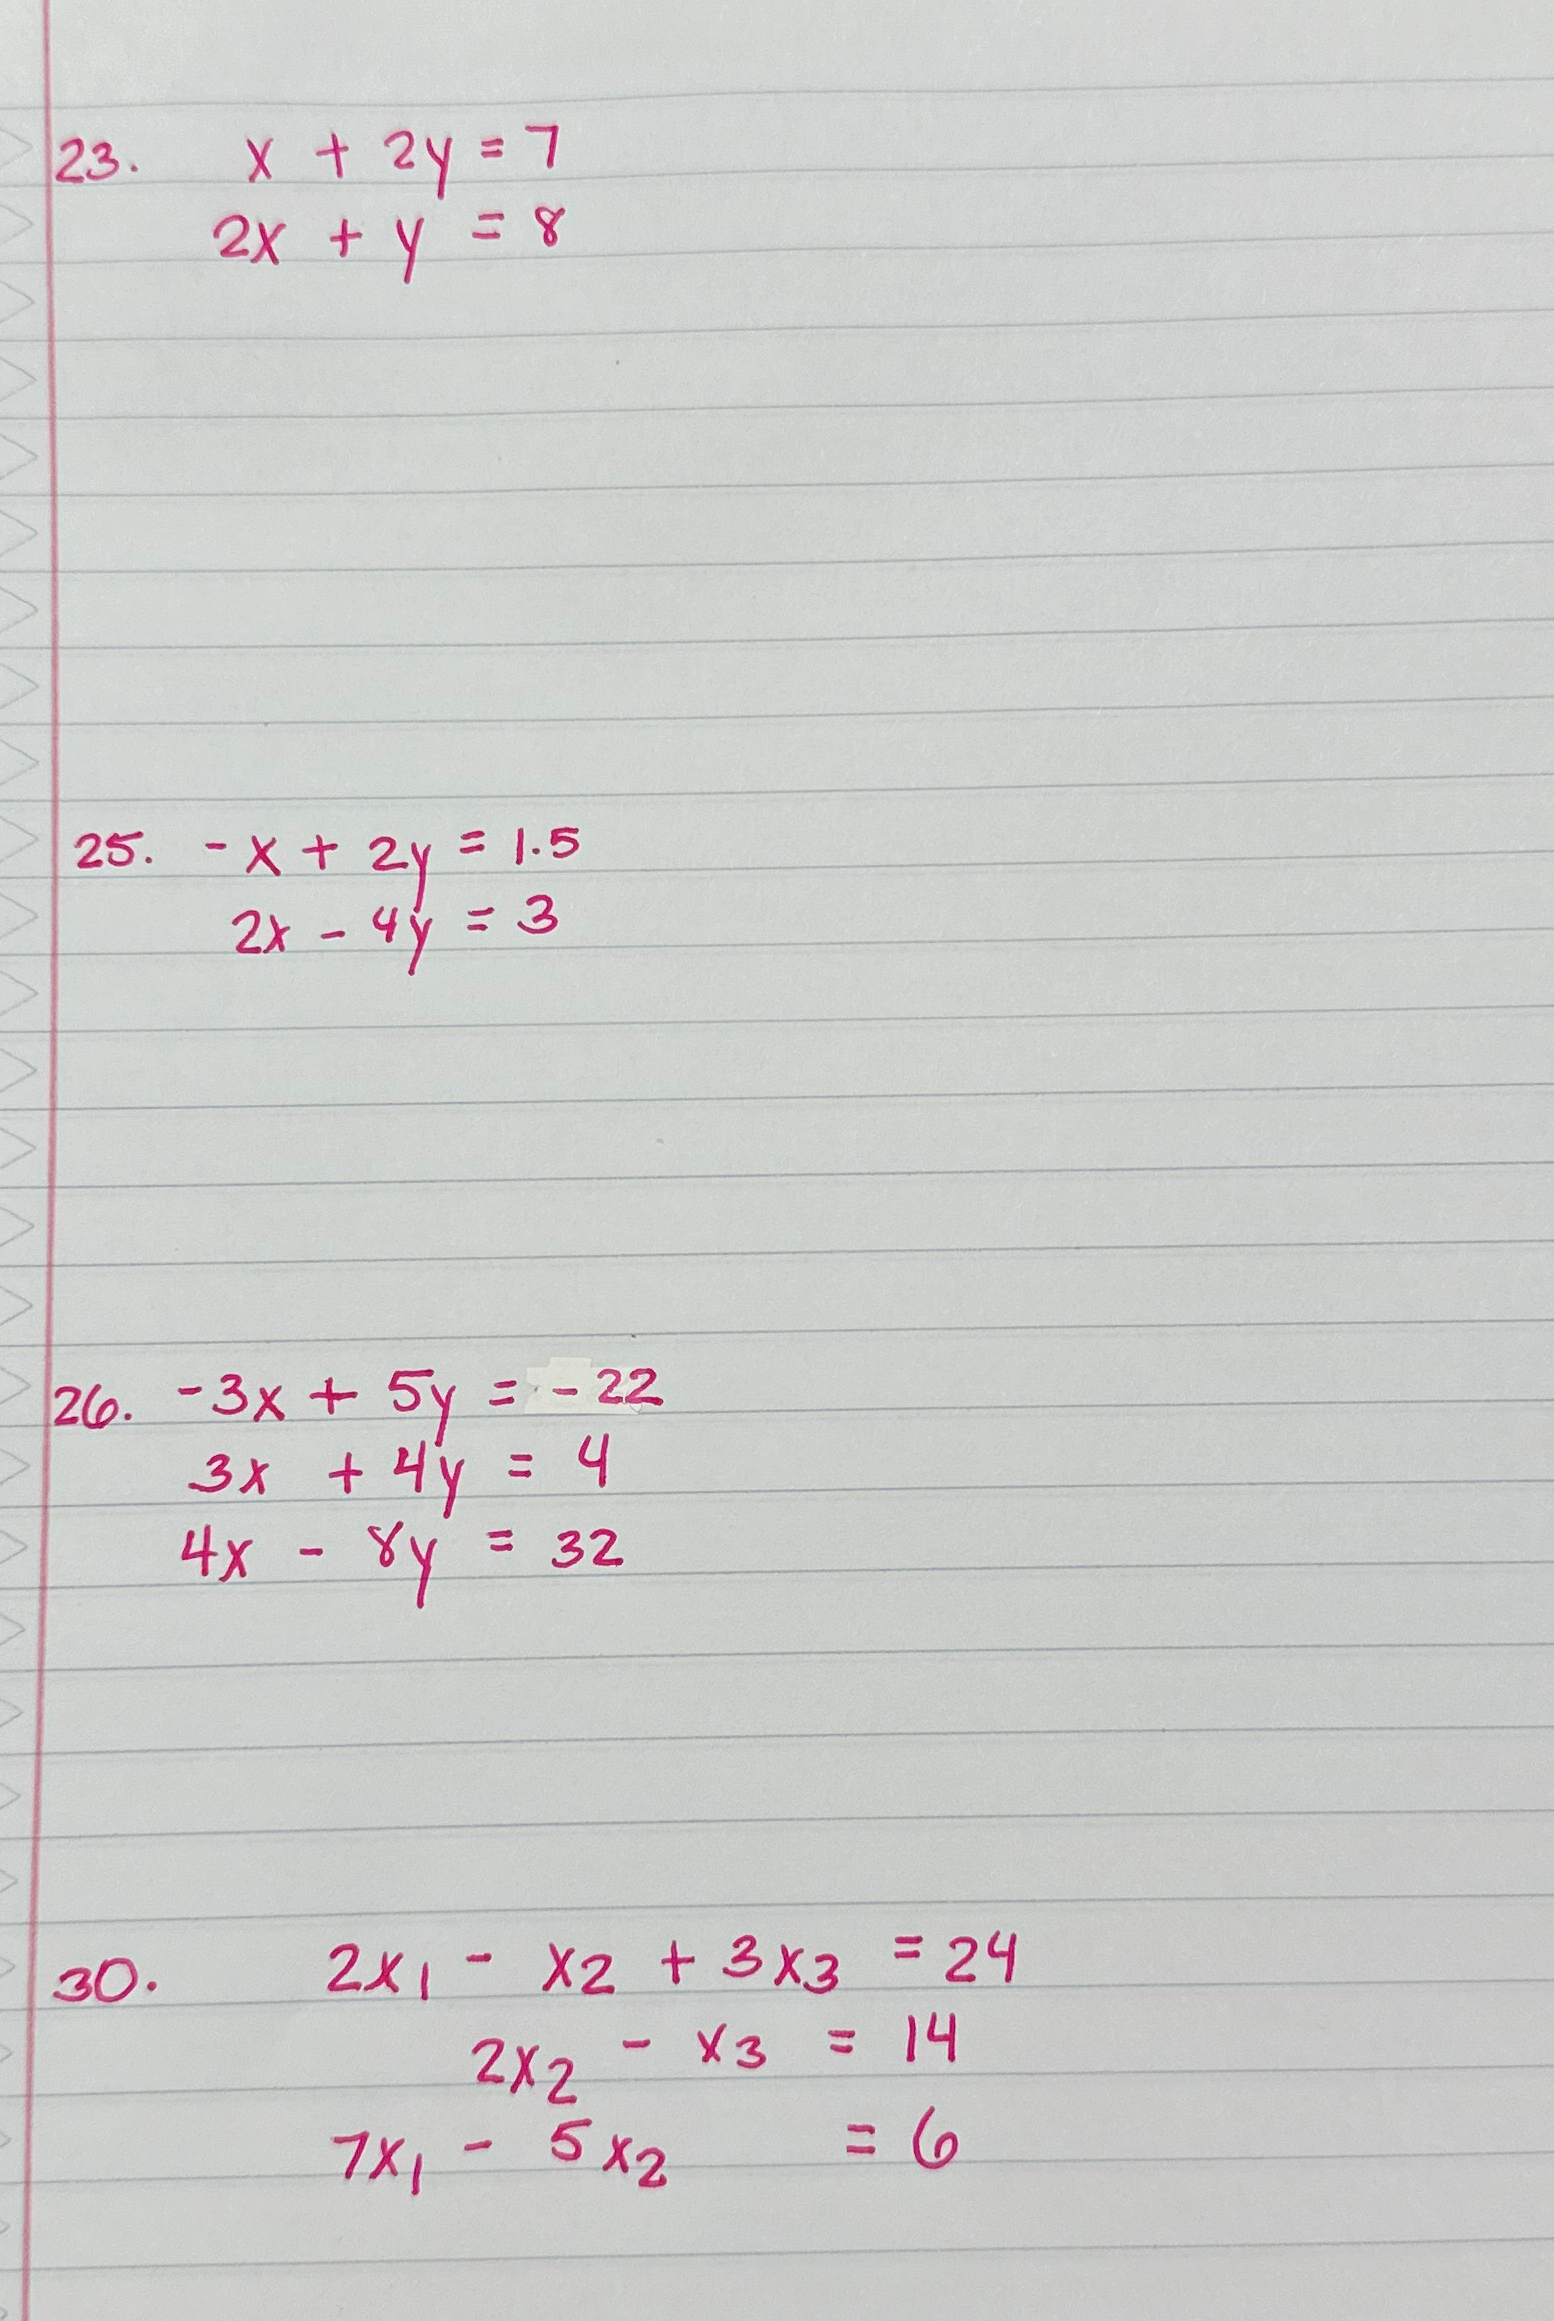 23. x + 2y = 7
2x + y = 8
25. -x + 2y = 1.5
2x - 4y = 3
26. -3x + 5y = -22
3x + 4y = 4
4x - 8y = 32
30. 2x₁ - x₂ + 3x₃ = 24
2x₂ - x₃ = 14
7x₁ - 5x₂ = 6